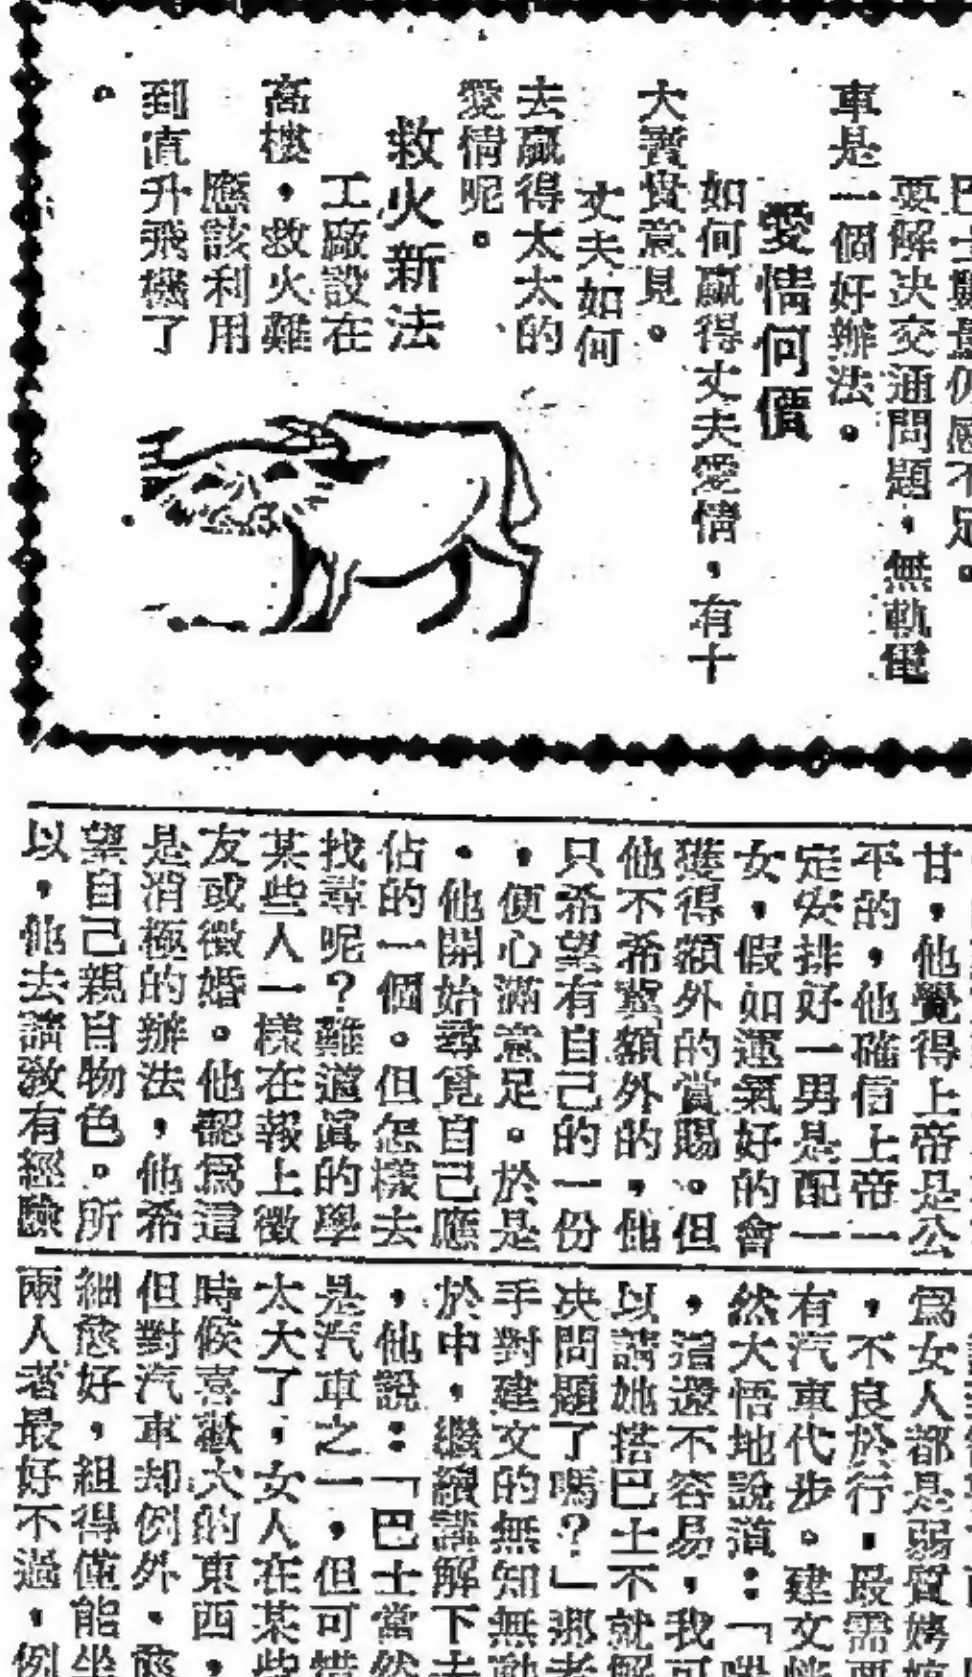 巴士數量仍感不足。
要解决交通問題，無軌電
車是一個好辦法。
愛情何價
如何贏得丈夫愛情，有十
大寶貴意見。
丈夫如何
去贏得太太的
愛情呢。
救火新法
工廠設在
高樓，救火難
應該利用
到直升飛機了
。
甘，他覺得上帝是公
平的，他確信上帝一
定安排好一男是配一
女，假如運氣好的會
獲得額外的賞賜。但
他不希冀額外的，他
只希望有自己的一份
，便心滿意足。於是
，他開始尋覓自己應
佔的一個。但怎樣去
找尋呢？難道眞的學
某些人一樣在報上徵
友或徵婚。他認爲這
是消極的辦法，他希
望自己親自物色。所
以，他去請教有經驗
爲女人都是弱質
，不良於行，最需要
有汽車代步。建文恍
然大悟地說道：「
，這還不容易，我可
以請她搭巴士不就解
决問題了嗎？」那者
手對建文的無知無動
於中，繼續講解下去
，他說：「巴士當然
是汽車之一，但可惜
太大了，女人在某些
時候喜歡大的東西，
但對汽車却例外，愈
細愈好，組得僅能坐
兩人者最好不過，例